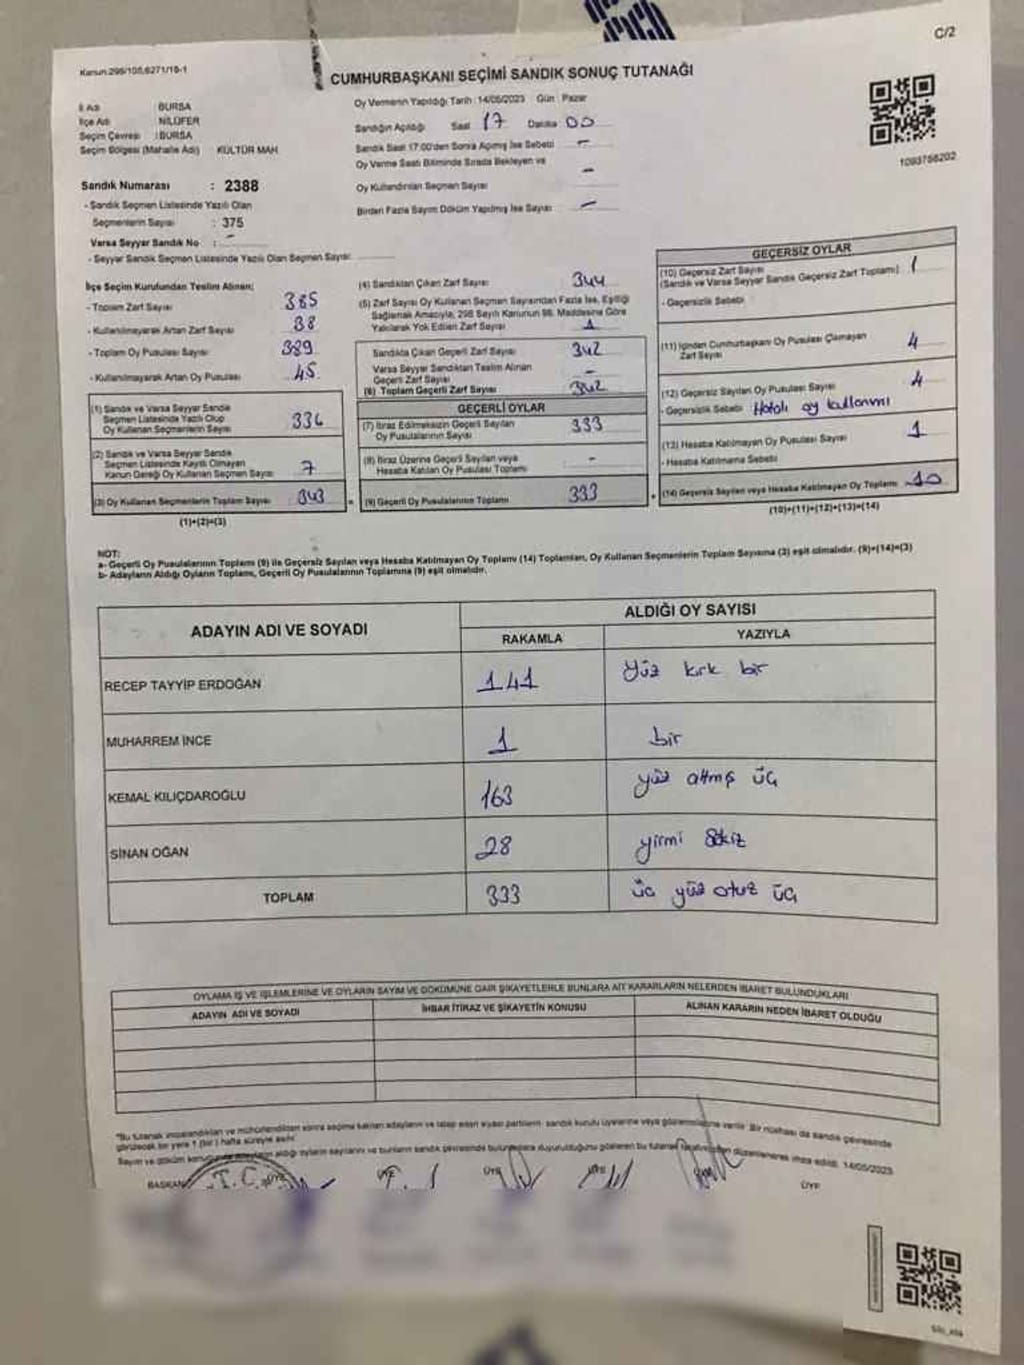 C/2
Kanun:298/105,6271/18-1
CUMHURBAŞKANI SEÇİMİ SANDIK SONUÇ TUTANAĞI
İl Adı : BURSA
İlçe Adı : NİLÜFER
Seçim Çevresi : BURSA
Seçim Bölgesi (Mahalle Adı) KÜLTÜR MAH
Oy Vermenin Yapıldığı Tarih :14/05/2023 Gün : Pazar
Sandığın Açıldığı Saat 17 Dakika 00
Sandık Saat 17:00'den Sonra Açılmış İse Sebebi -
Oy Verme Saati Bitiminde Sırada Bekleyen ve
Oy Kullandırılan Seçmen Sayısı -
Birden Fazla Sayım Döküm Yapılmış İse Sayısı -
1093758202
Sandık Numarası : 2388
- Sandık Seçmen Listesinde Yazılı Olan
Seçmenlerin Sayısı : 375
Varsa Seyyar Sandık No : -
- Seyyar Sandık Seçmen Listesinde Yazılı Olan Seçmen Sayısı:
İlçe Seçim Kurulundan Teslim Alınan;
- Toplam Zarf Sayısı 385
- Kullanılmayarak Artan Zarf Sayısı 38
- Toplam Oy Pusulası Sayısı 389
- Kullanılmayarak Artan Oy Pusulası 45
(1) Sandık ve Varsa Seyyar Sandık
Seçmen Listesinde Yazılı Olup
Oy Kullanan Seçmenlerin Sayısı 336
(2) Sandık ve Varsa Seyyar Sandık
Seçmen Listesinde Kayıtlı Olmayan
Kanun Gereği Oy Kullanan Seçmen Sayısı 7
(3) Oy Kullanan Seçmenlerin Toplam Sayısı 343
(1)+(2)=(3)
(4) Sandıktan Çıkan Zarf Sayısı 344
(5) Zarf Sayısı Oy Kullanan Seçmen Sayısından Fazla İse, Eşitliği
Sağlamak Amacıyla, 298 Sayılı Kanunun 98. Maddesine Göre
Yakılarak Yok Edilen Zarf Sayısı 1
Sandıkta Çıkan Geçerli Zarf Sayısı 342
Varsa Seyyar Sandıktan Teslim Alınan
Geçerli Zarf Sayısı -
(6) Toplam Geçerli Zarf Sayısı 342
GEÇERLİ OYLAR
(7) İtiraz Edilmeksizin Geçerli Sayılan
Oy Pusulalarının Sayısı 333
(8) İtiraz Üzerine Geçerli Sayılan veya
Hesaba Katılan Oy Pusulası Toplamı -
(9) Geçerli Oy Pusulalarının Toplamı 333
GEÇERSİZ OYLAR
(10) Geçersiz Zarf Sayısı
(Sandık ve Varsa Seyyar Sandık Geçersiz Zarf Toplamı) 1
- Geçersizlik Sebebi
(11) İçinden Cumhurbaşkanı Oy Pusulası Çıkmayan
Zarf Sayısı 4
(12) Geçersiz Sayılan Oy Pusulası Sayısı 4
- Geçersizlik Sebebi Hatalı oy kullanımı
(13) Hesaba Katılmayan Oy Pusulası Sayısı 1
- Hesaba Katılmama Sebebi
(14) Geçersiz Sayılan veya Hesaba Katılmayan Oy Toplamı 10
(10)+(11)+(12)+(13)=(14)
NOT:
a- Geçerli Oy Pusulalarının Toplamı (9) ile Geçersiz Sayılan veya Hesaba Katılmayan Oy Toplamı (14) Toplamları, Oy Kullanan Seçmenlerin Toplam Sayısına (3) eşit olmalıdır. (9)+(14)=(3)
b- Adayların Aldığı Oyların Toplamı, Geçerli Oy Pusulalarının Toplamına (9) eşit olmalıdır.
ADAYIN ADI VE SOYADI
ALDIĞI OY SAYISI
RAKAMLA YAZIYLA
RECEP TAYYİP ERDOĞAN 141 Yüz kırk bir
MUHARREM İNCE 1 bir
KEMAL KILIÇDAROĞLU 163 yüz altmış üç
SİNAN OĞAN 28 yirmi sekiz
TOPLAM 333 üç yüz otuz üç
OYLAMA İŞ VE İŞLEMLERİNE VE OYLARIN SAYIM VE DÖKÜMÜNE DAİR ŞİKAYETLERLE BUNLARA AİT KARARLARIN NELERDEN İBARET BULUNDUKLARI
ADAYIN ADI VE SOYADI İHBAR İTİRAZ VE ŞİKAYETİN KONUSU ALINAN KARARIN NEDEN İBARET OLDUĞU
*Bu tutanak imzalandıktan ve mühürlendikten sonra seçime katılan adayların ve talep eden siyasi partilerin sandık kurulu üyelerine veya gözlemcilerine verilir. Bir nüshası da sandık çevresinde
görülecek bir yere 1 (bir) hafta süreyle asılır.
Sayım ve döküm aldığı oyların sayılarını ve bunların sandık çevresinde duyurulduğunu gösteren bu tutanak düzenlenerek imza edildi. 14/05/2023
BAŞKAN ÜYE ÜYE ÜYE ÜYE
T.C.